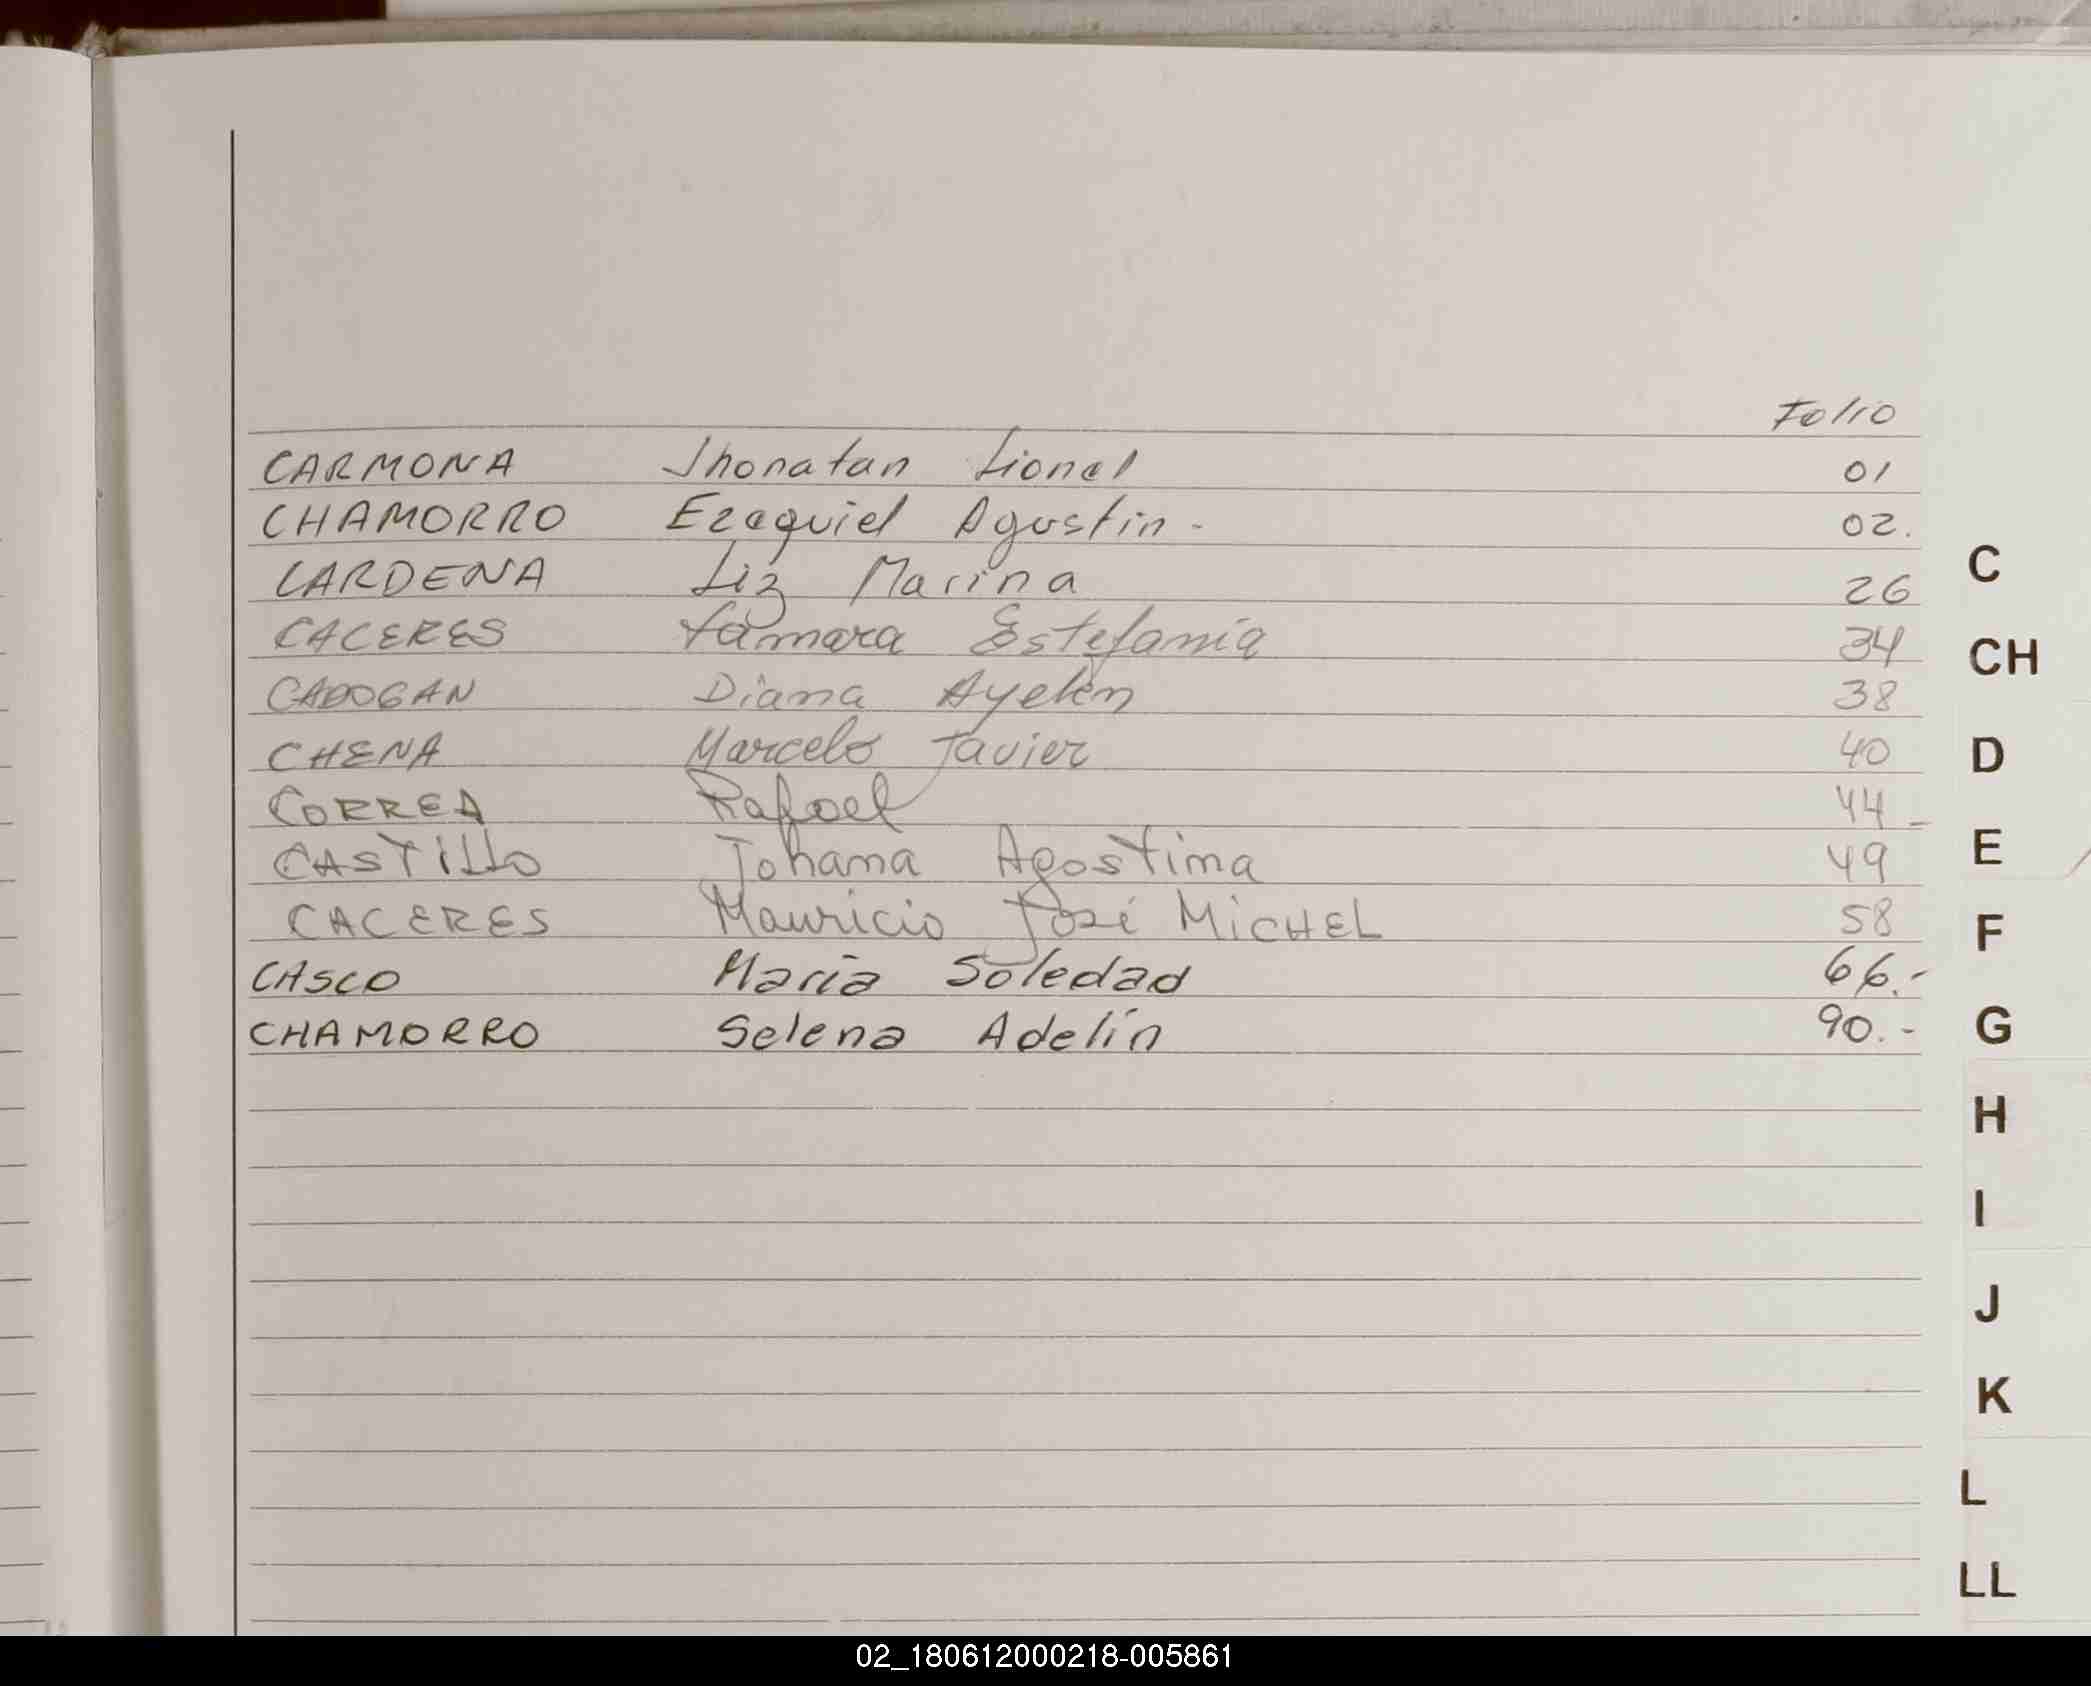 Folio
CARMONA Jhonatan Lionel 01
CHAMORRO Ezequiel Agustin - 02.
CARDENA Liz Marina 26
CACERES Tamara Estefania 34
CADOGAN Diana Ayelén 38
CHENA Marcelo Javier 40
CORREA Rafael 44 -
CASTILLO Johana Agostina 49
CACERES Mauricio José MICHEL 58
CASCO María Soledad 66.-
CHAMORRO Selena Adelín 90.-
C
CH
D
E
F
G
H
I
J
K
L
LL
02_180612000218-005861